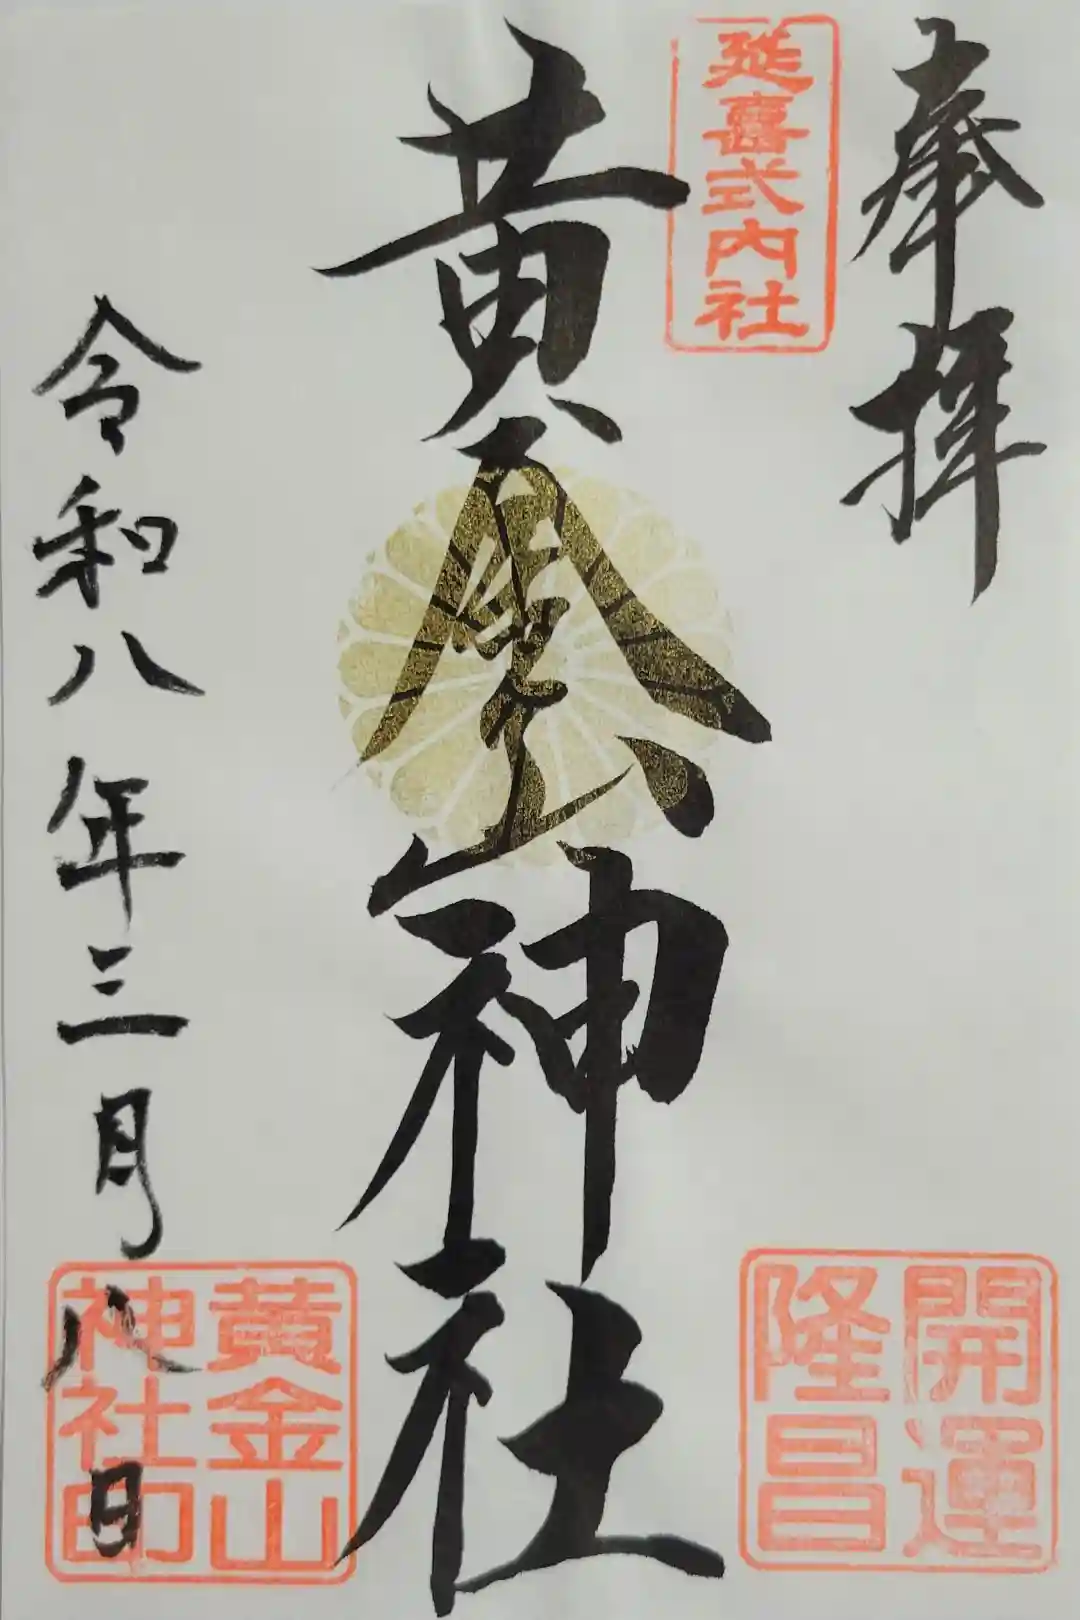 奉拝
延喜式内社
開運
隆昌
黄金山神社
令和八年三月八日
黄金山
神社印